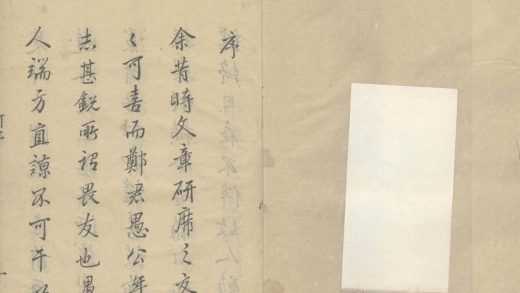 序
余昔時文章研席之交
〻可喜而鄭君愚公年
志甚銳所謂畏友也
人端方直諒不可干